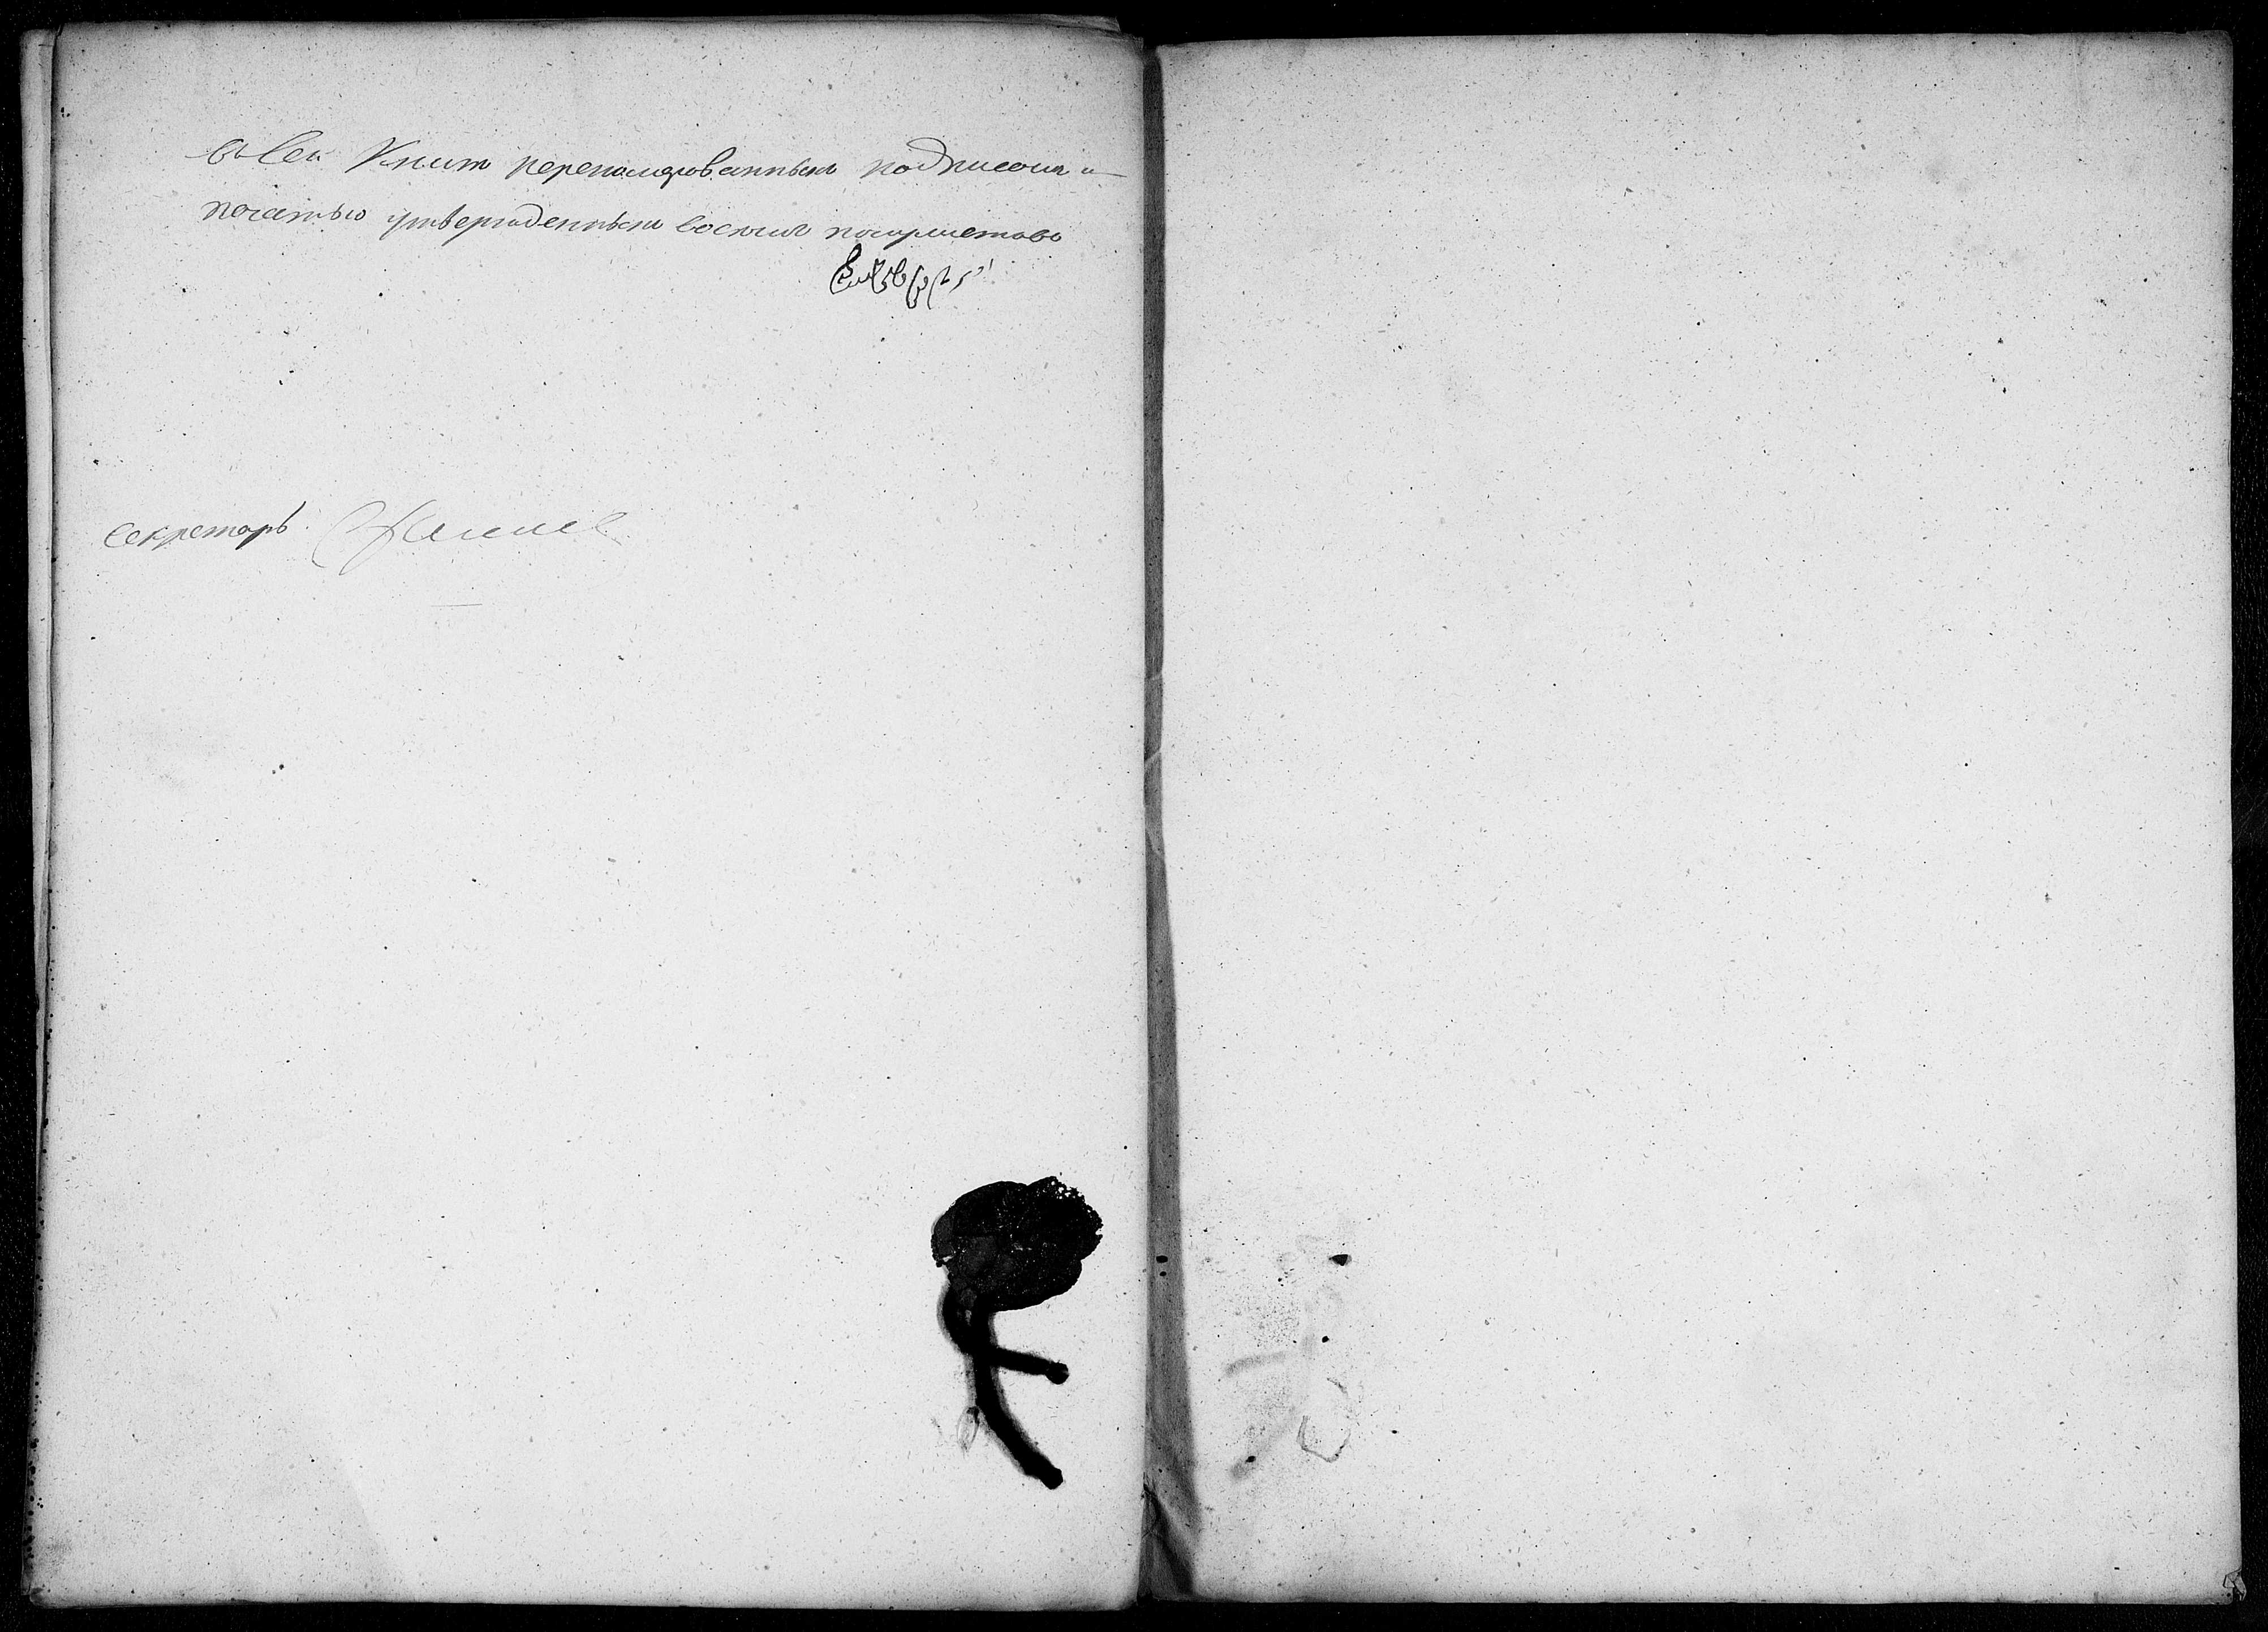 въ сей Книгѣ перенумерованныхъ подписомъ и
печатью утвержденныхъ восемь полулистовъ
секретарь